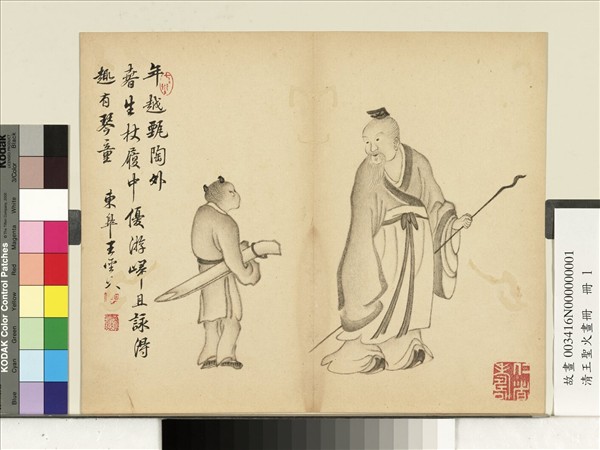 年越甄陶外
春生杖履中優游且詠得
趣有琴童
東皋王聖火
故畫 003416N000000001
清王聖火畫冊 冊 1
Kodak
KODAK Color Control Patches
Blue
Cyan
Green
Yellow
Red
Magenta
White
3/Color
Black